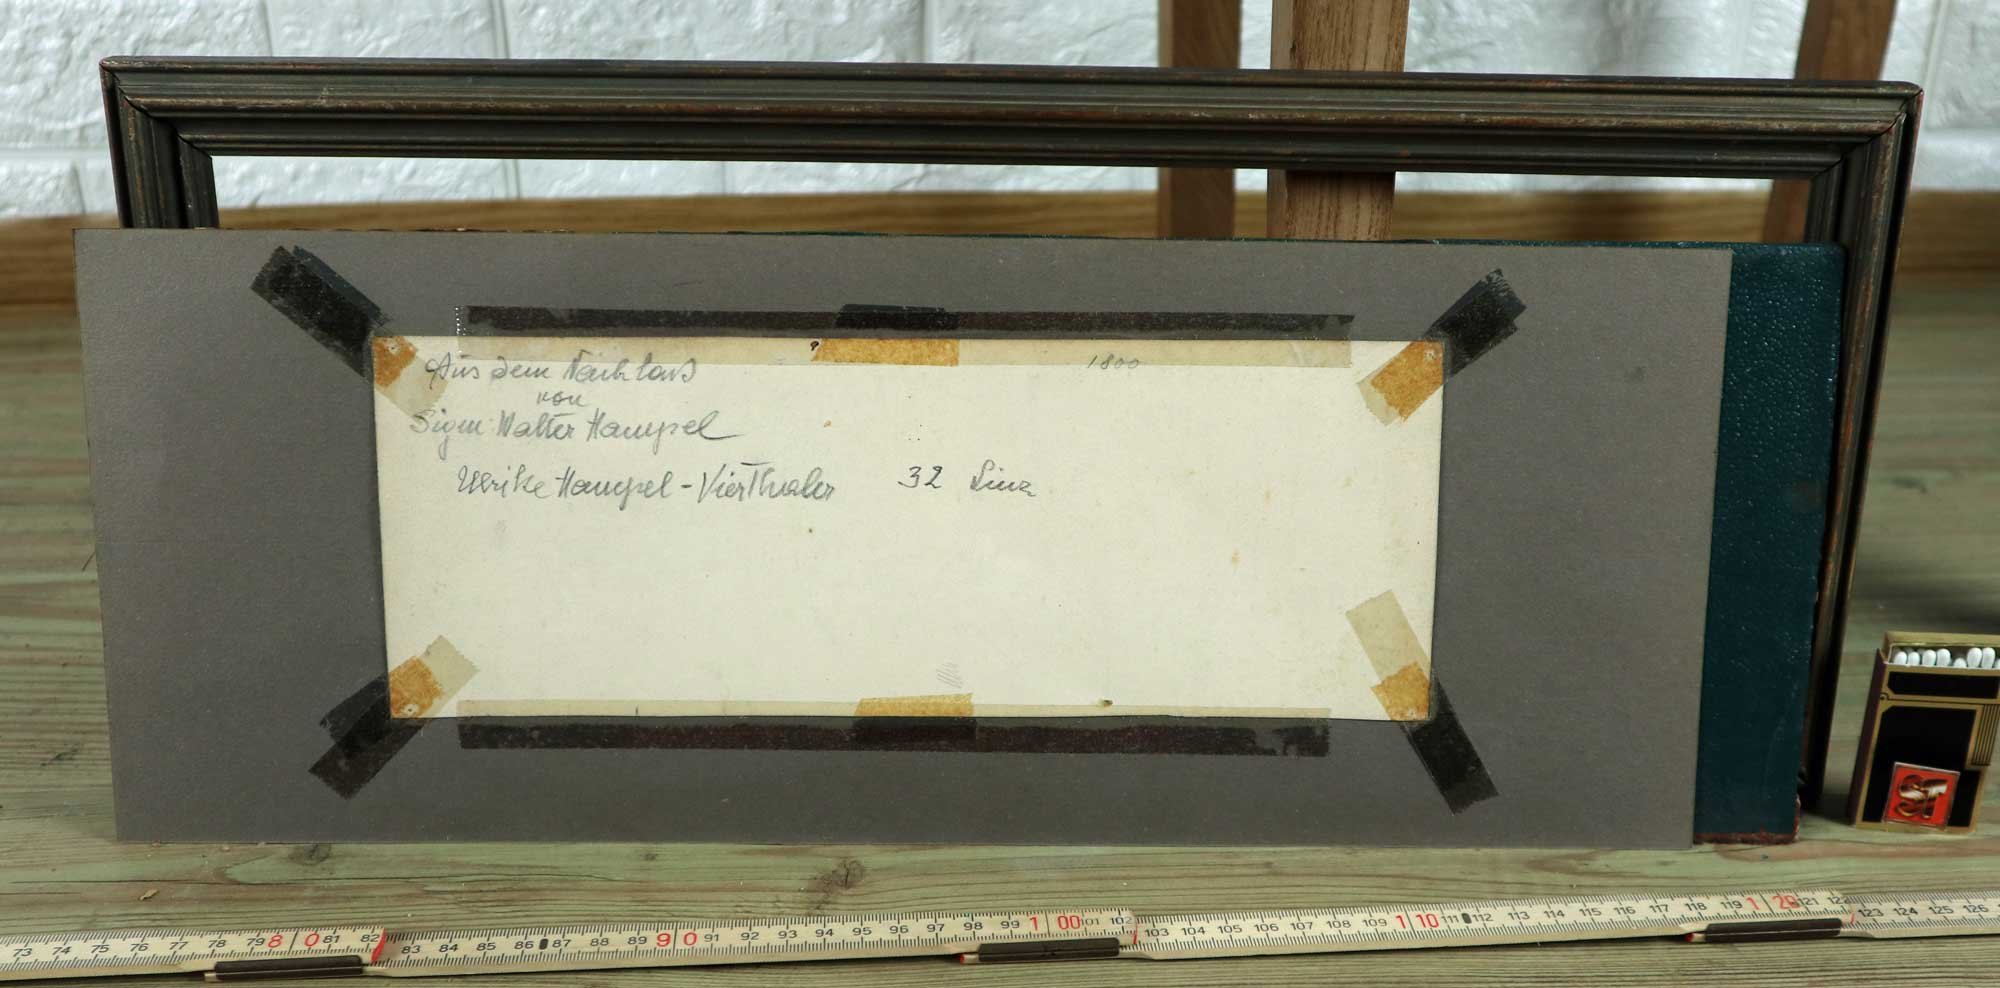 Aus dem Nachlass 1800
von
Sigm. Walter Hampel
Ulrike Hampel-Vierthaler 32 Linz
73 74 75 76 77 78 79 80 81 82 83 84 85 86 87 88 89 90 91 92 93 94 95 96 97 98 99 100 101 102 103 104 105 106 107 108 109 110 111 112 113 114 115 116 117 118 119 120 121 122 123 124 125 126